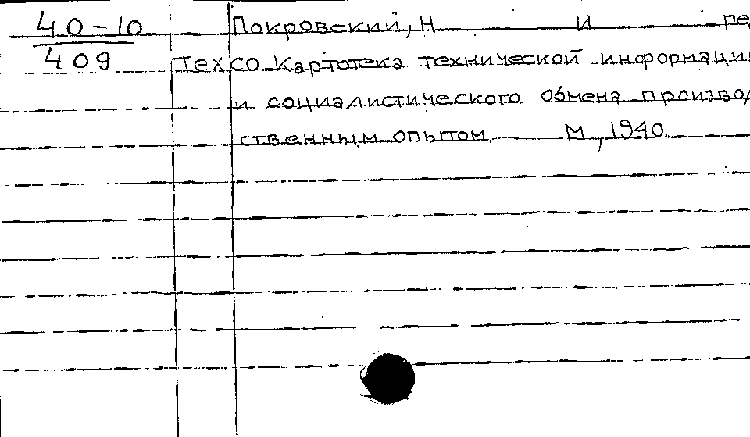 40-10
409
Покровский, Н И ре
Техсо. Картотека технической информации
и социалистического обмена производ
ственным опытом М, 1940